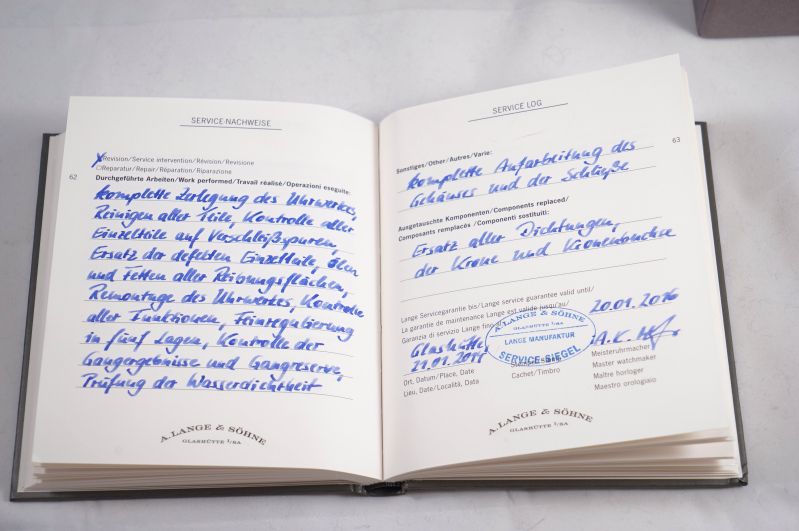 SERVICE-NACHWEISE
Revision/Service intervention/Révision/Revisione
Reparatur/Repair/Réparation/Riparazione
62
Durchgeführte Arbeiten/Work performed/Travail réalisé/Operazioni eseguite:
komplette Zerlegung des Uhrwerkes,
Reinigen aller Teile, Kontrolle aller
Einzelteile auf Verschleißspuren,
Ersatz der defekten Einzelteile, ölen
und fetten aller Reibungsflächen,
Remontage des Uhrwerkes, Kontrolle
aller Funktionen, Feinregulierung
in fünf Lagen, Kontrolle der
Gangergebnisse und Gangreserve,
Prüfung der Wasserdichtheit
A. LANGE & SÖHNE
GLASHÜTTE I/SA
SERVICE LOG
63
Sonstiges/Other/Autres/Varie:
komplette Aufarbeitung des
Gehäuses und der Schließe
Ausgetauschte Komponenten/Components replaced/
Composants remplacés/Componenti sostituiti:
Ersatz aller Dichtungen,
der Krone und Kronenbuchse
Lange Servicegarantie bis/Lange service guarantee valid until/
La garantie de maintenance Lange est valide jusqu'au/
Garanzia di servizio Lange fino al
20.01.2016
Glashütte
21.01.2014
A. LANGE & SÖHNE
GLASHÜTTE I/SA
LANGE MANUFAKTUR
SERVICE-SIEGEL
A.K.
Ort, Datum/Place, Date
Lieu, Date/Località, Data
Cachet/Timbro
Meisteruhrmacher
Master watchmaker
Maître horloger
Maestro orologiaio
A. LANGE & SÖHNE
GLASHÜTTE I/SA